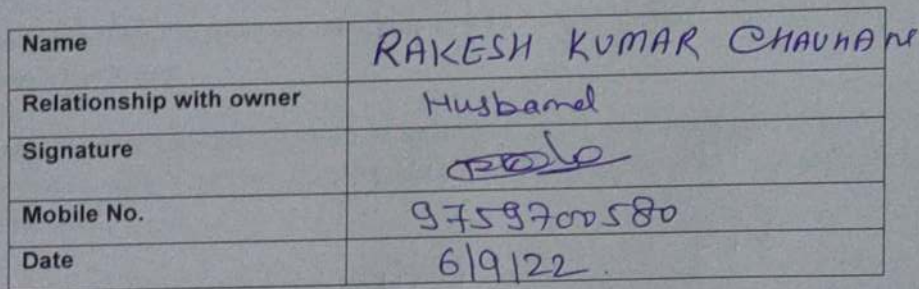 Name RAKESH KUMAR CHAUHAN
Relationship with owner Husband
Signature
Mobile No. 9759700580
Date 6/9/22.